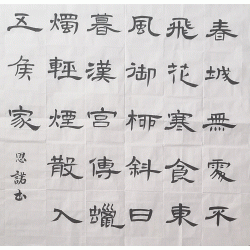 春城無處不
飛花寒食東
風御柳斜日
暮漢宮傳蠟
燭輕煙散入
五侯家
思諾书